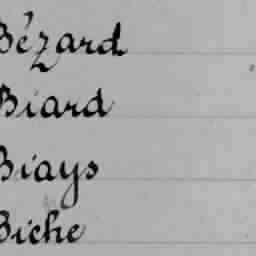 Bézard
Biard
Biays
Biche